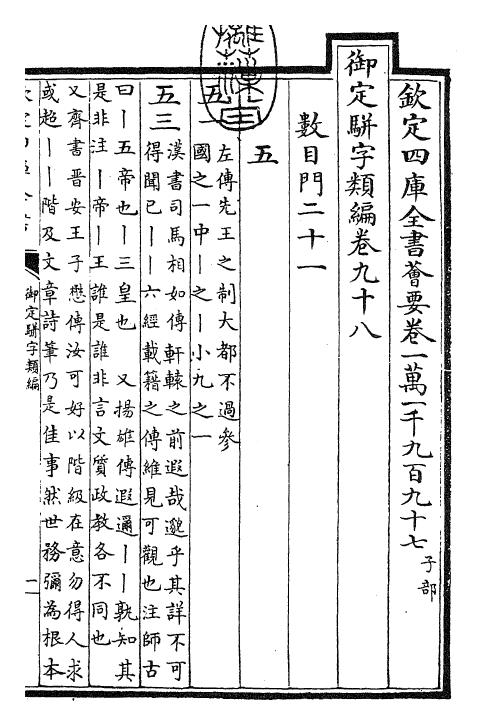 欽定四庫全書薈要卷一萬一千九百九十七 子部
御定駢字類編卷九十八
數目門二十一
五
五一 左傳先王之制大都不過參
國之一中丨之丨小九之一
五三 漢書司馬相如傳 軒轅之前遐哉邈乎其詳不可
得聞已丨丨六經載籍之傳維見可觀也注師古
曰丨五帝也丨三皇也 又揚雄傳遐邇丨丨孰知其
是非注丨帝丨王誰是誰非言文質政教各不同也
又齊書晉安王子懋傳汝可好以階級在意勿得人求
或超丨丨階及文章詩筆乃是佳事然世務彌為根本
御定駢字類編
一